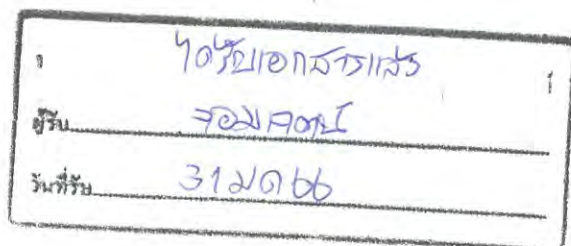 ได้รับเอกสารแล้ว
ผู้รับ
วันที่รับ 31 มค 66